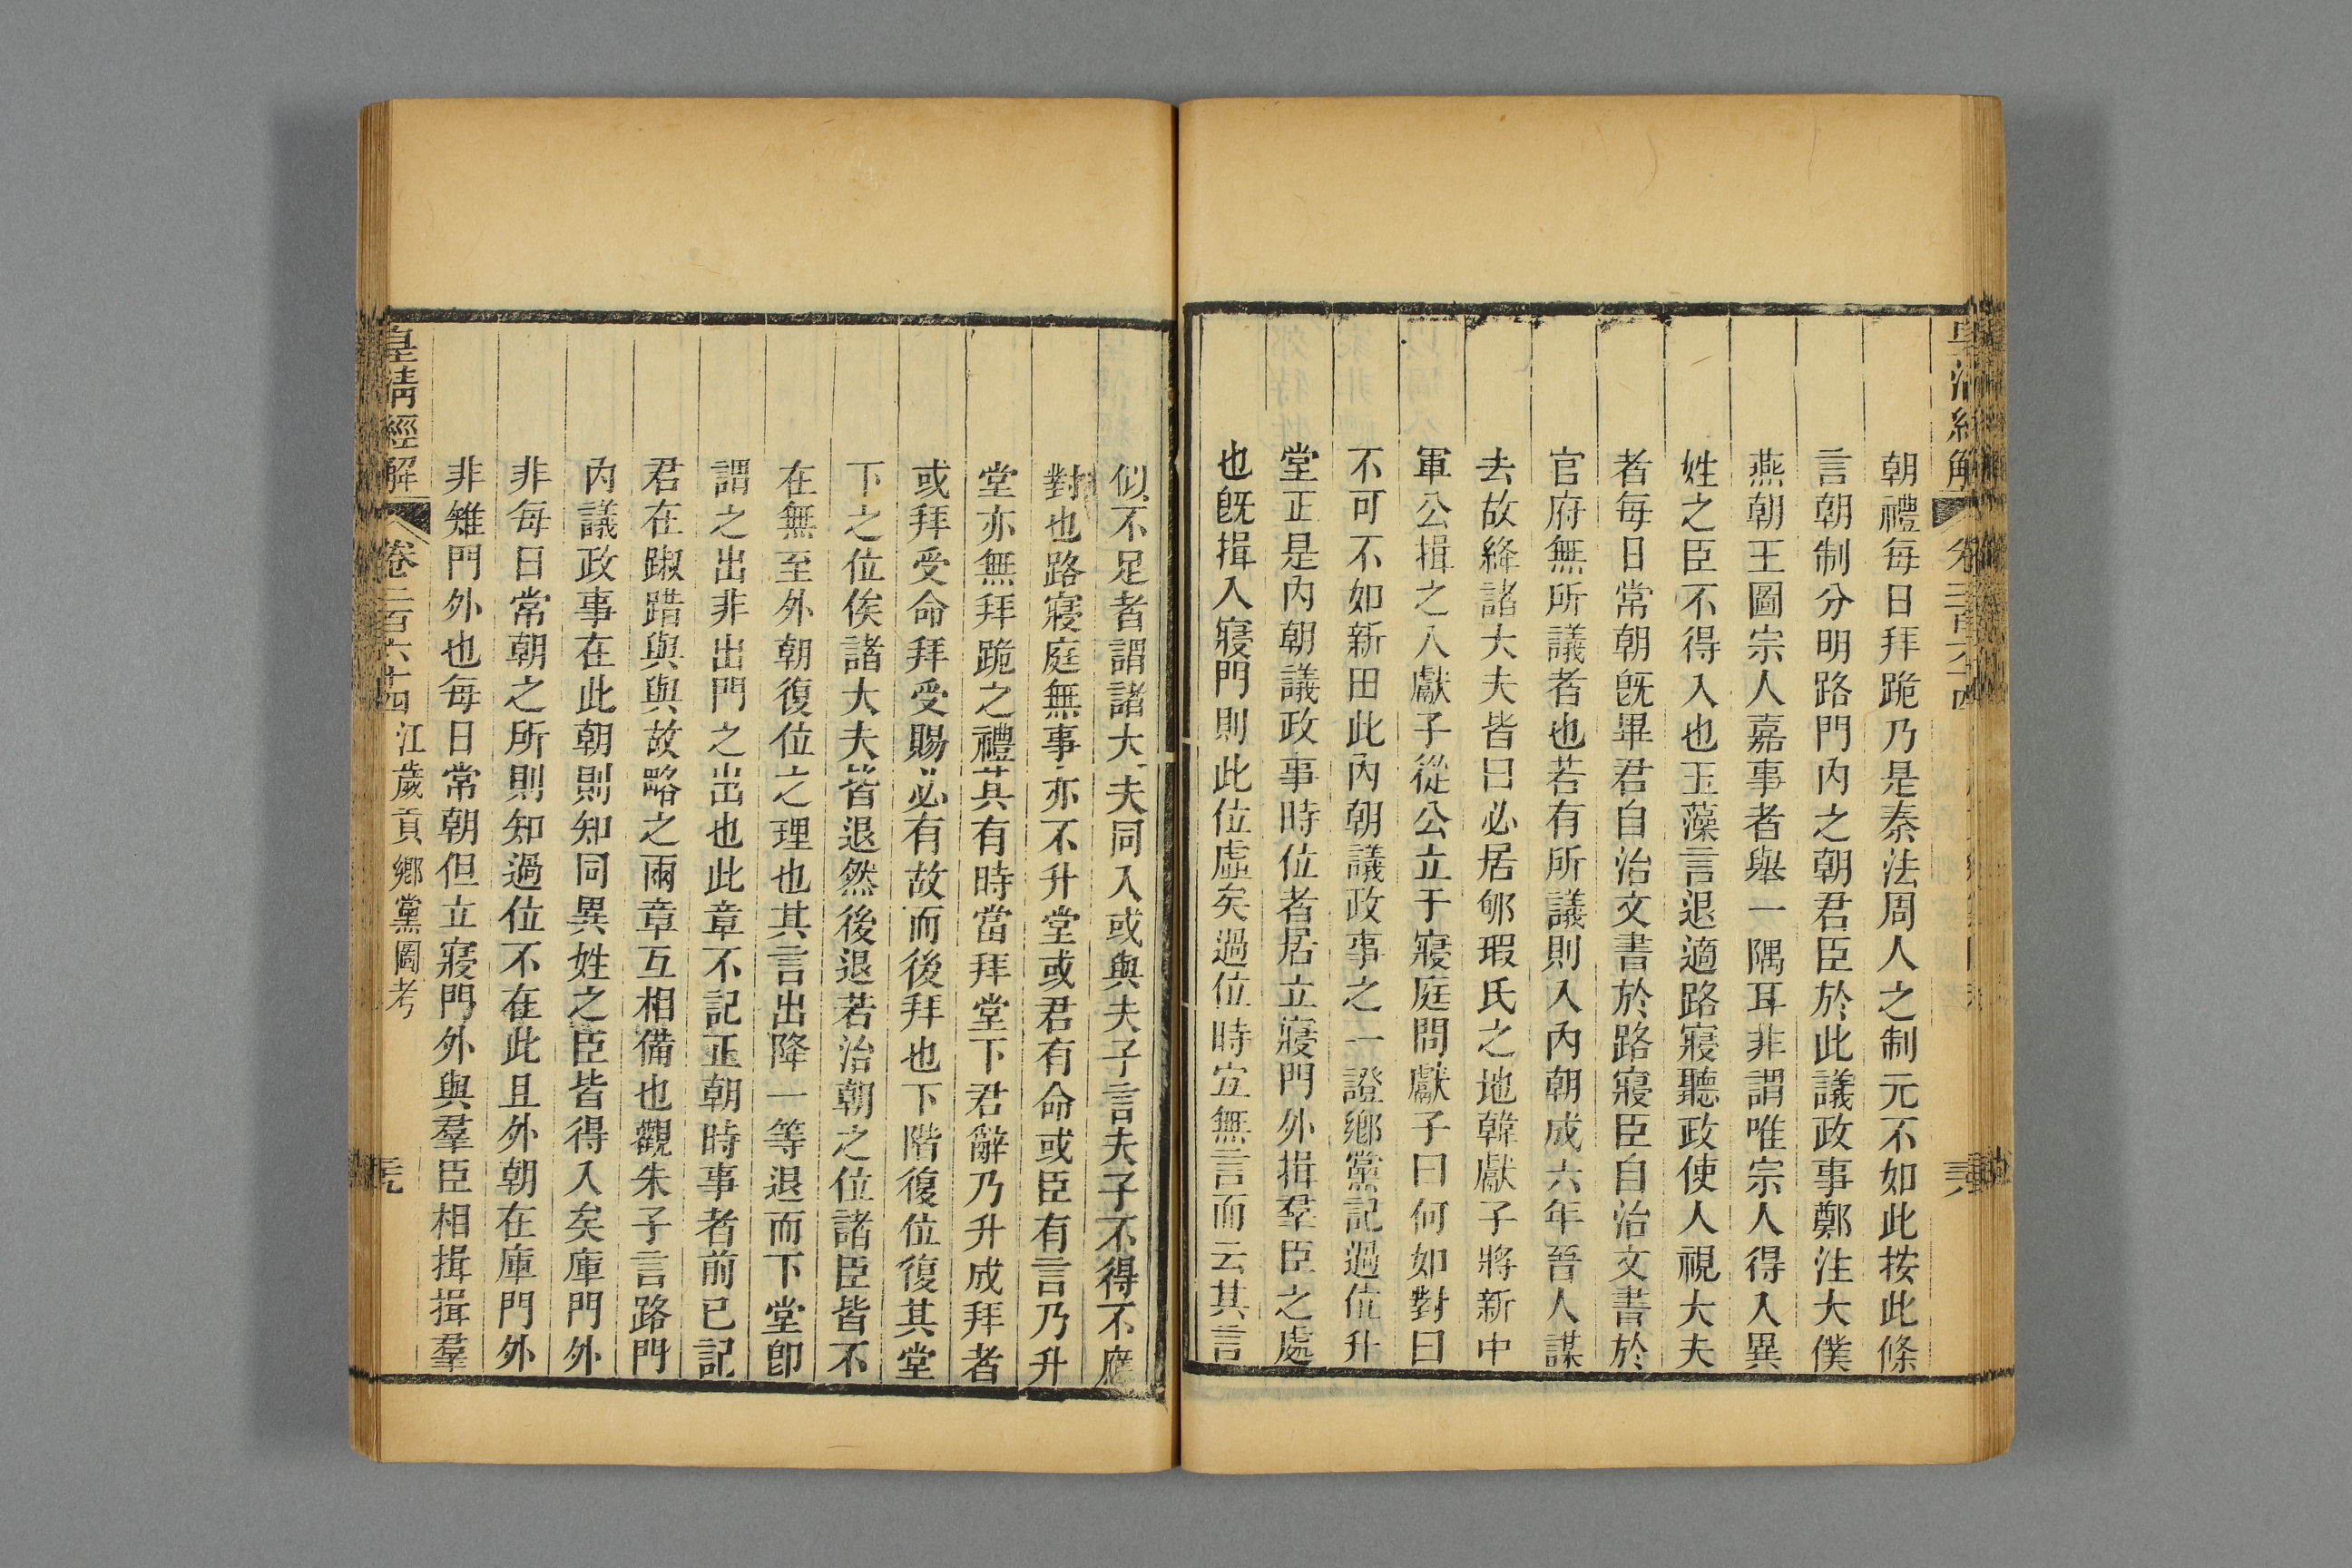 朝禮每日拜跪乃是秦法周人之制元不如此按此條
言朝制分明路門內之朝君臣於此議政事鄭注大僕
燕朝王圖宗人嘉事者舉一隅耳非謂唯宗人得入異
姓之臣不得入也玉藻言退適路寢聽政使人視大夫
者每日常朝旣畢君自治文書於路寢臣自治文書於
官府無所議者也若有所議則入內朝成六年晉人謀
去故絳諸大夫皆曰必居郇瑕氏之地韓獻子將新中
軍公揖之入獻子從公立于寢庭問獻子曰何如對曰
不可不如新田此內朝議政事之一證鄉黨記過位升
堂正是內朝議政事時位者君立寢門外揖羣臣之處
也旣揖入寢門則此位虛矣過位時宜無言而云其言
似不足者謂諸大夫同入或與夫子言夫子不得不應
對也路寢庭無事亦不升堂或君有命或臣有言乃升
堂亦無拜跪之禮其有時當拜堂下君辭乃升成拜者
或拜受命拜受賜必有故而後拜也下階復位復其堂
下之位俟諸大夫皆退然後退若治朝之位諸臣皆不
在無至外朝復位之理也其言出降一等退而下堂卽
謂之出非出門之出也此章不記正朝時事者前已記
君在踧踖與與故略之兩章互相備也觀朱子言路門
內議政事在此朝則知同異姓之臣皆得入矣庫門外
非每日常朝之所則知過位不在此且外朝在庫門外
非雉門外也每日常朝但立寢門外與羣臣相揖揖羣
皇清經解
卷二百六十四 江歲貢鄉黨圖考